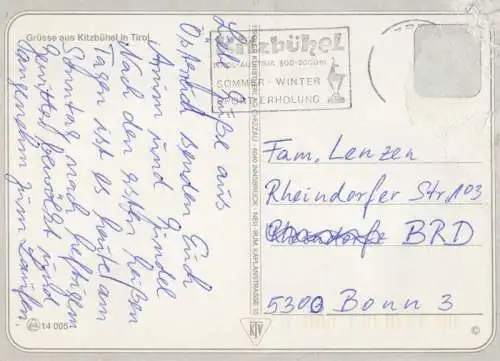 Grüsse aus Kitzbühel in Tirol
Liebe Grüße aus
Österreich senden Euch
Armin und Gundel
Nach den ersten heißen
Tagen ist es heute am
Sonntag nach heftigem
Gewitter bewölkt und
angenehm zum Laufen.
14 005
KJV
Kitzbühel
800-2000m
SOMMER - WINTER
SPORT ERHOLUNG
Fam. Lenzen
Rheindorfer Str. 103
BRD
5300 Bonn 3
©